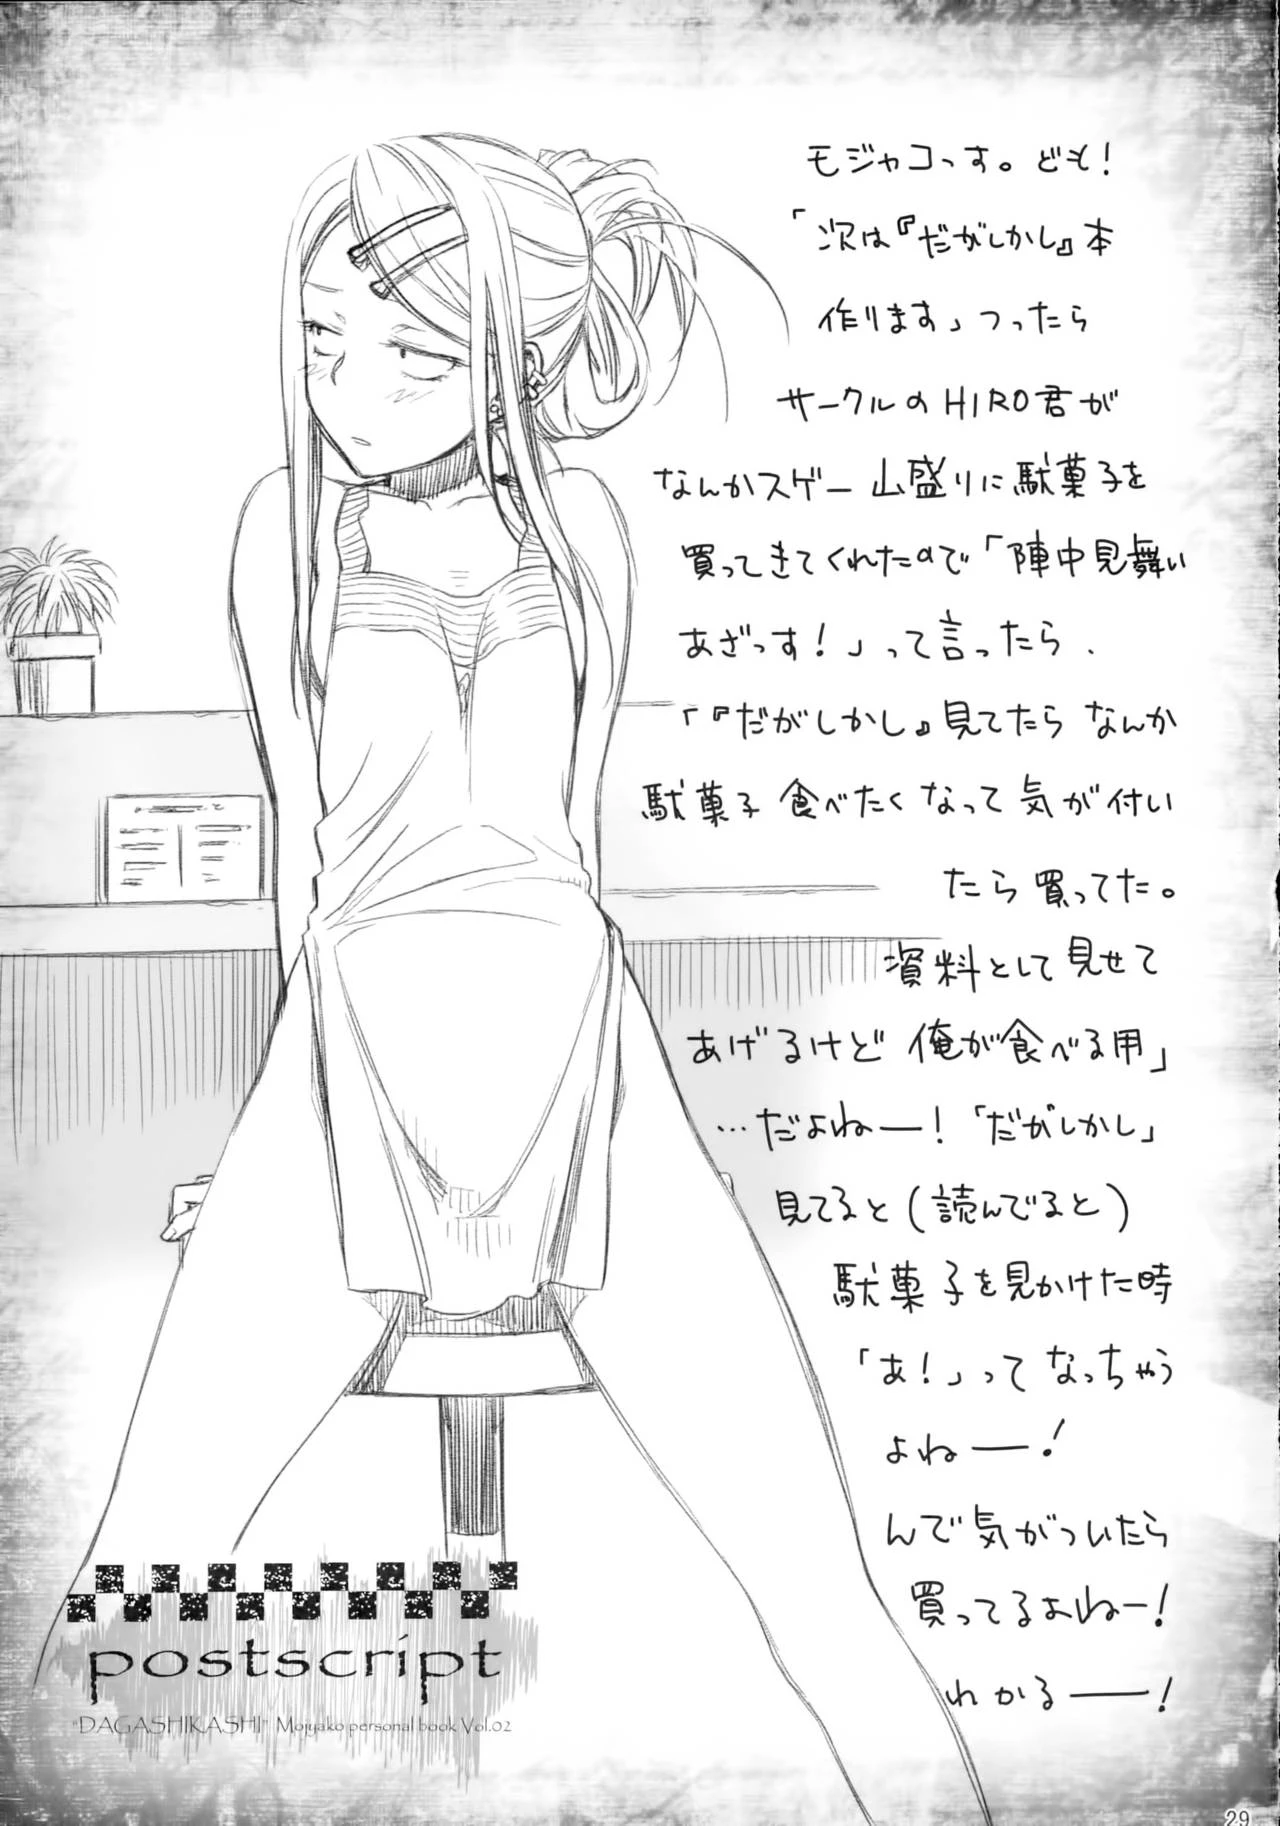 モジャコっす。ども！
「次は『だがしかし』本
作ります」つったら
サークルのHIRO君が
なんかスゲー山盛りに駄菓子を
買ってきてくれたので「陣中見舞い
あざっす！」って言ったら、
「『だがしかし』見てたらなんか
駄菓子食べたくなって気が付い
たら買ってた。
資料として見せて
あげるけど俺が食べる用」
…だよねー！「だがしかし」
見てると(読んでると)
駄菓子を見かけた時
「あ！」ってなっちゃう
よねー！
んで気がついたら
買ってるよねー！
わかるー！
postscript
"DAGASHIKASHI" Mojyako personal book Vol.02
29